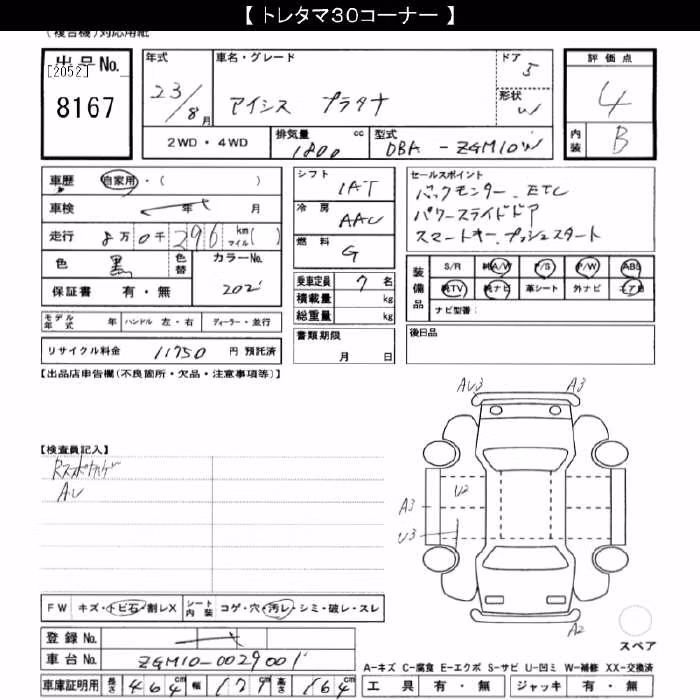 【 トレタマ30コーナー 】
(複合機)対応用紙
出品No. [2052] 8167
年式 23/8月
車名・グレード アイシス プラタナ
ドア 5
形状 W
評価点 4
内装 B
2WD・4WD
排気量 1800 cc
型式 DBA-ZGM10W
車歴 自家用・( )
車検 年 月
走行 8万0千296 km マイル( )
色 黒 色替 カラーNo. 202
保証書 有・無
モデル年式 年 ハンドル 左・右 ディーラー・並行
リサイクル料金 11750 円 預託済
シフト IAT
冷房 AAC
燃料 G
乗車定員 7 名
積載量 kg
総重量 kg
書類期限 月 日
セールスポイント
バックモニター、ETC
パワースライドドア
スマートキー、プッシュスタート
装備品 S/R 純A/W P/S P/W ABS
純TV 純ナビ 革シート 外ナビ エアB
ナビ型番:
後日品
【出品店申告欄(不良箇所・欠品・注意事項等)】
【検査員記入】
AU
AU3 A3
U2
A3
U3
A2
スペア
FW キズ・トビ石・割レX シート内装 コゲ・穴・汚レ・シミ・破レ・スレ
登録No.
車台No. ZGM10-0029001
車庫証明用 長さ 464cm 幅 171cm 高さ 164cm
A-キズ C-腐食 E-エクボ S-サビ U-凹ミ W-補修 XX-交換済
工具 有・無 ジャッキ 有・無